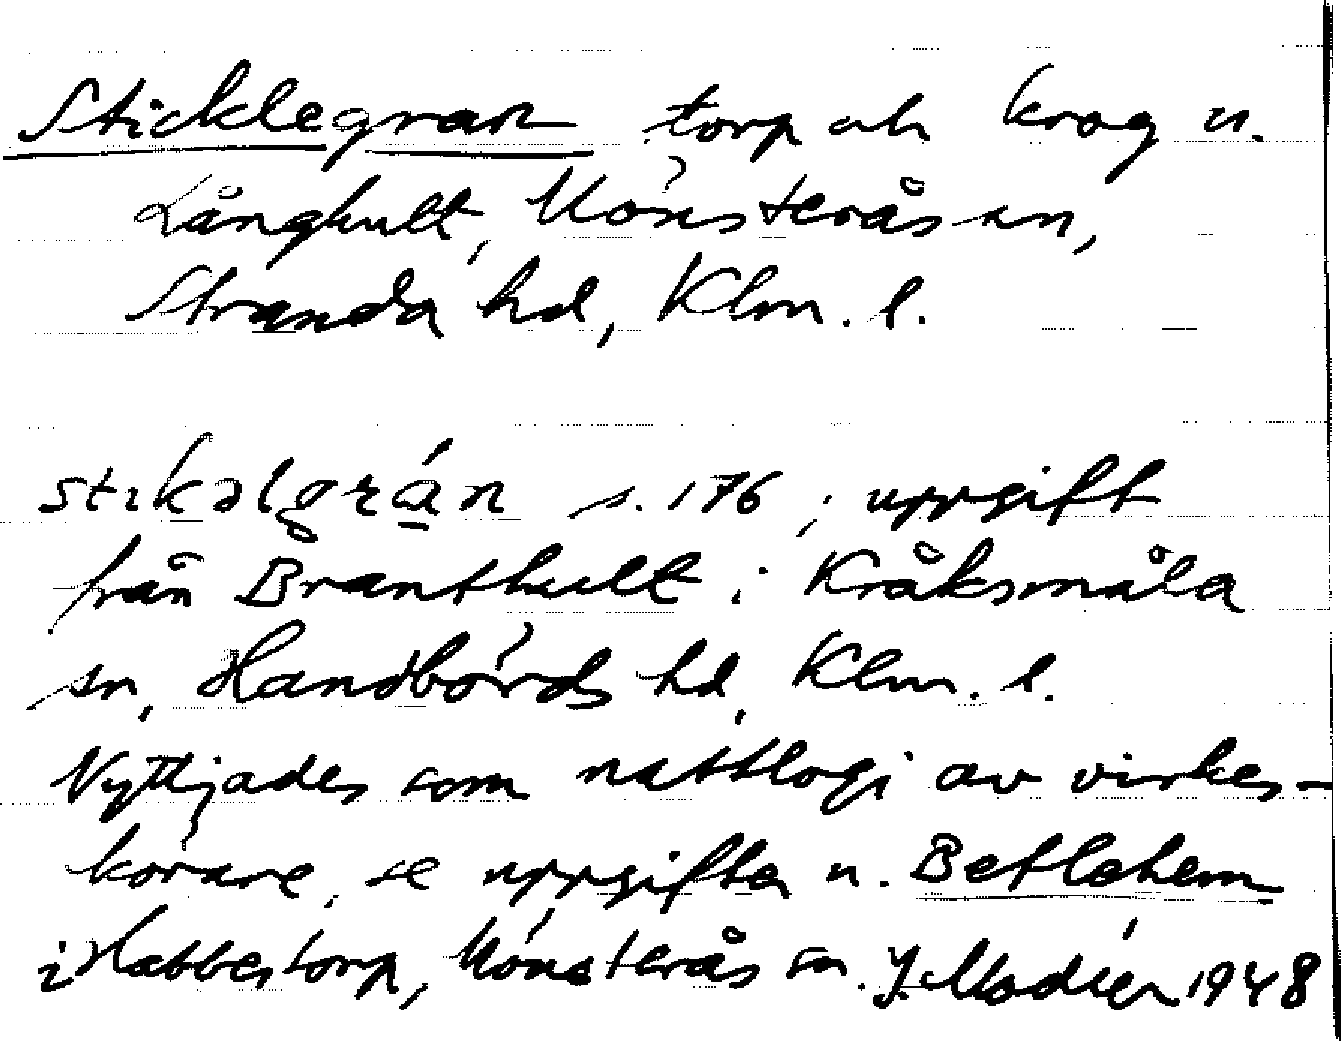 Sticklegran torp och krog u.
Långhult, Mönsterås sn,
Stranda hd, Klm. l.
stikəlgrán s. 176, uppgift
från Branthult i Kråksmåla
sn, Handbörds hd, Klm. l.
Nyttjades som nattlogi av virkes-
körare, se uppgifter u. Betlehem
i Habbestorp, Mönsterås sn. J. Modéer 1948